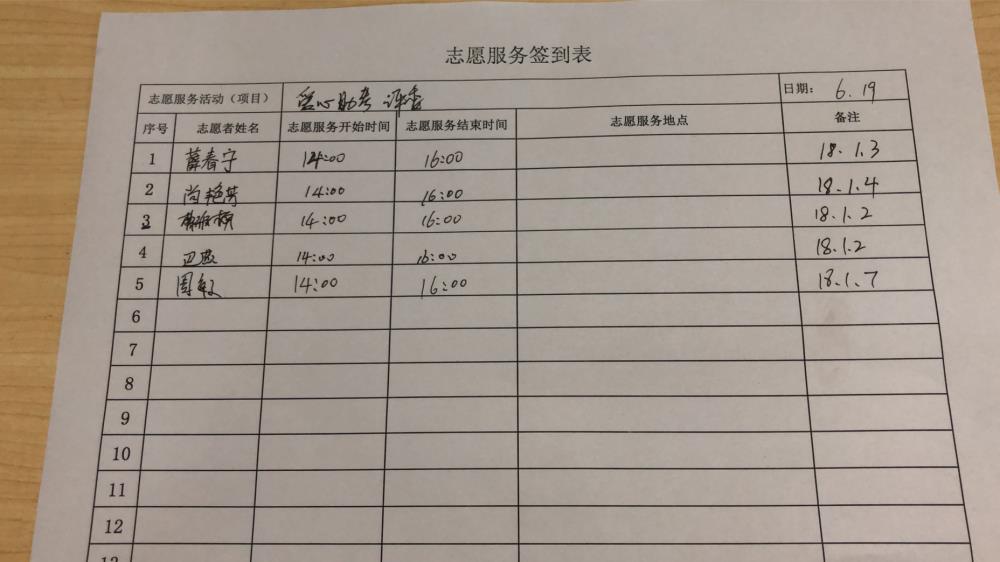 志愿服务签到表
志愿服务活动（项目） 爱心助考 评委 日期： 6.19
序号 志愿者姓名 志愿服务开始时间 志愿服务结束时间 志愿服务地点 备注
1 薛春宁 14:00 16:00 18.1.3
2 尚艳芳 14:00 16:00 18.1.4
3 14:00 16:00 18.1.2
4 14:00 16:00 18.1.2
5 周毅 14:00 16:00 18.1.7
6
7
8
9
10
11
12